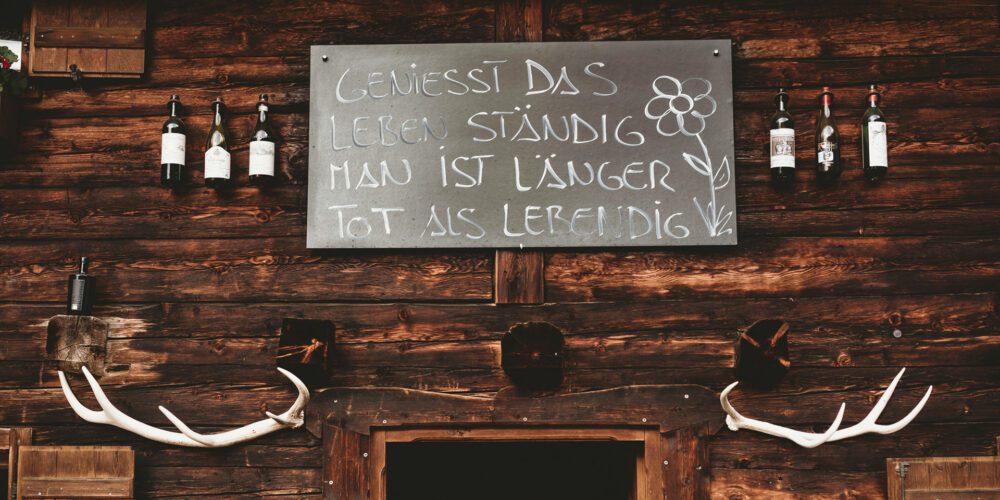 GENIESST DAS
LEBEN STÄNDIG
MAN IST LÄNGER
TOT ALS LEBENDIG